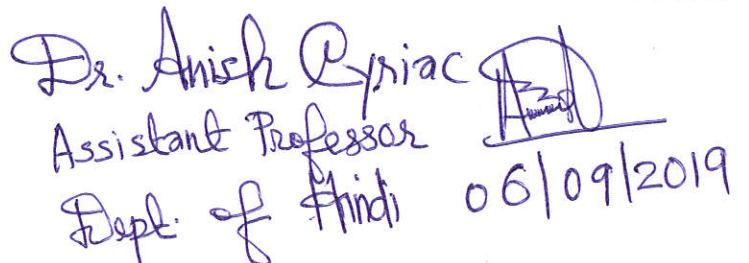 Dr. Anish Cyriac
Assistant Professor
Dept. of Hindi 06/09/2019